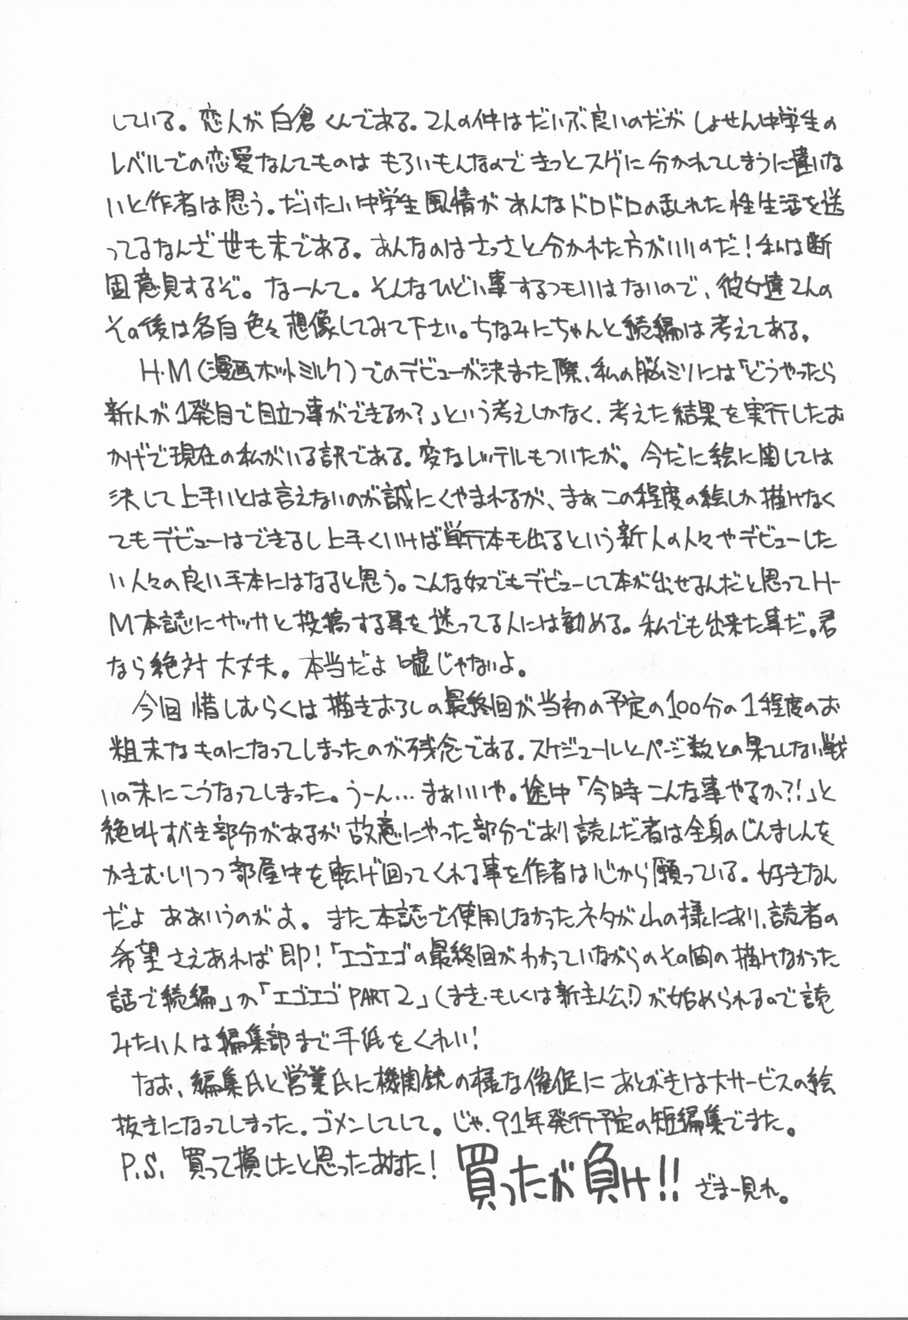 している。恋人が白倉くんである。2人の件はだいぶ良いのだがしょせん中学生の
レベルでの恋愛なんてものはもろいもんなのできっとスグに分かれてしまうに違いな
いと作者は思う。だいたい中学生風情があんなドロドロの乱れた性生活を送
ってるなんざ世も末である。あんなのはさっさと分かれた方がいいのだ！私は断
固意見するぞ。なーんて。そんなひどい事するつもりはないので、彼女達2人の
その後は各自色々想像してみて下さい。ちなみにちゃんと続編は考えてある。
H・M（漫画ホットミルク）でのデビューが決まった際、私の脳ミソには「どうやったら
新人が1発目で目立つ事ができるか？」という考えしかなく、考えた結果を実行したお
かげで現在の私がいる訳である。変なレッテルもついたが。今だに絵に関しては
決して上手いとは言えないのが誠にくやまれるが、まあこの程度の絵しか描けなく
てもデビューはできるし上手くいけば単行本も出るという新人の人々やデビューした
い人々の良い手本にはなると思う。こんな奴でもデビューして本が出せるんだと思ってH・
M本誌にサッサと投稿する事を迷ってる人には勧める。私でも出来た事だ。君
なら絶対大丈夫。本当だよ嘘じゃないよ。
今回惜しむらくは描きおろしの最終回が当初の予定の100分の1程度のお
粗末なものになってしまったのが残念である。スケジュールとページ数との果てしない戦
いの末にこうなってしまった。うーん…まあいいや。途中「今時こんな事やるか？！」と
絶叫すべき部分があるが故意にやった部分であり読んだ者は全身のじんましんを
かきむしりつつ部屋中を転げ回ってくれる事を作者は心から願っている。好きなん
だよああいうのがよ。また本誌で使用しなかったネタが山の様にあり、読者の
希望さえあれば即！「エゴエゴの最終回がわかっていながらのその間の描けなかった
話で続編」か「エゴエゴPART2」（まき・もしくは新主人公！）が始められるので読
みたい人は編集部まで手紙をくれい！
なお、編集氏と営業氏に機関銃の様な催促にあとがきは大サービスの絵
抜きになってしまった。ゴメンしてして。じゃ、91年発行予定の短編集でまた。
P.S. 買って損したと思ったあなた！買ったが負け!!ざまー見れ。